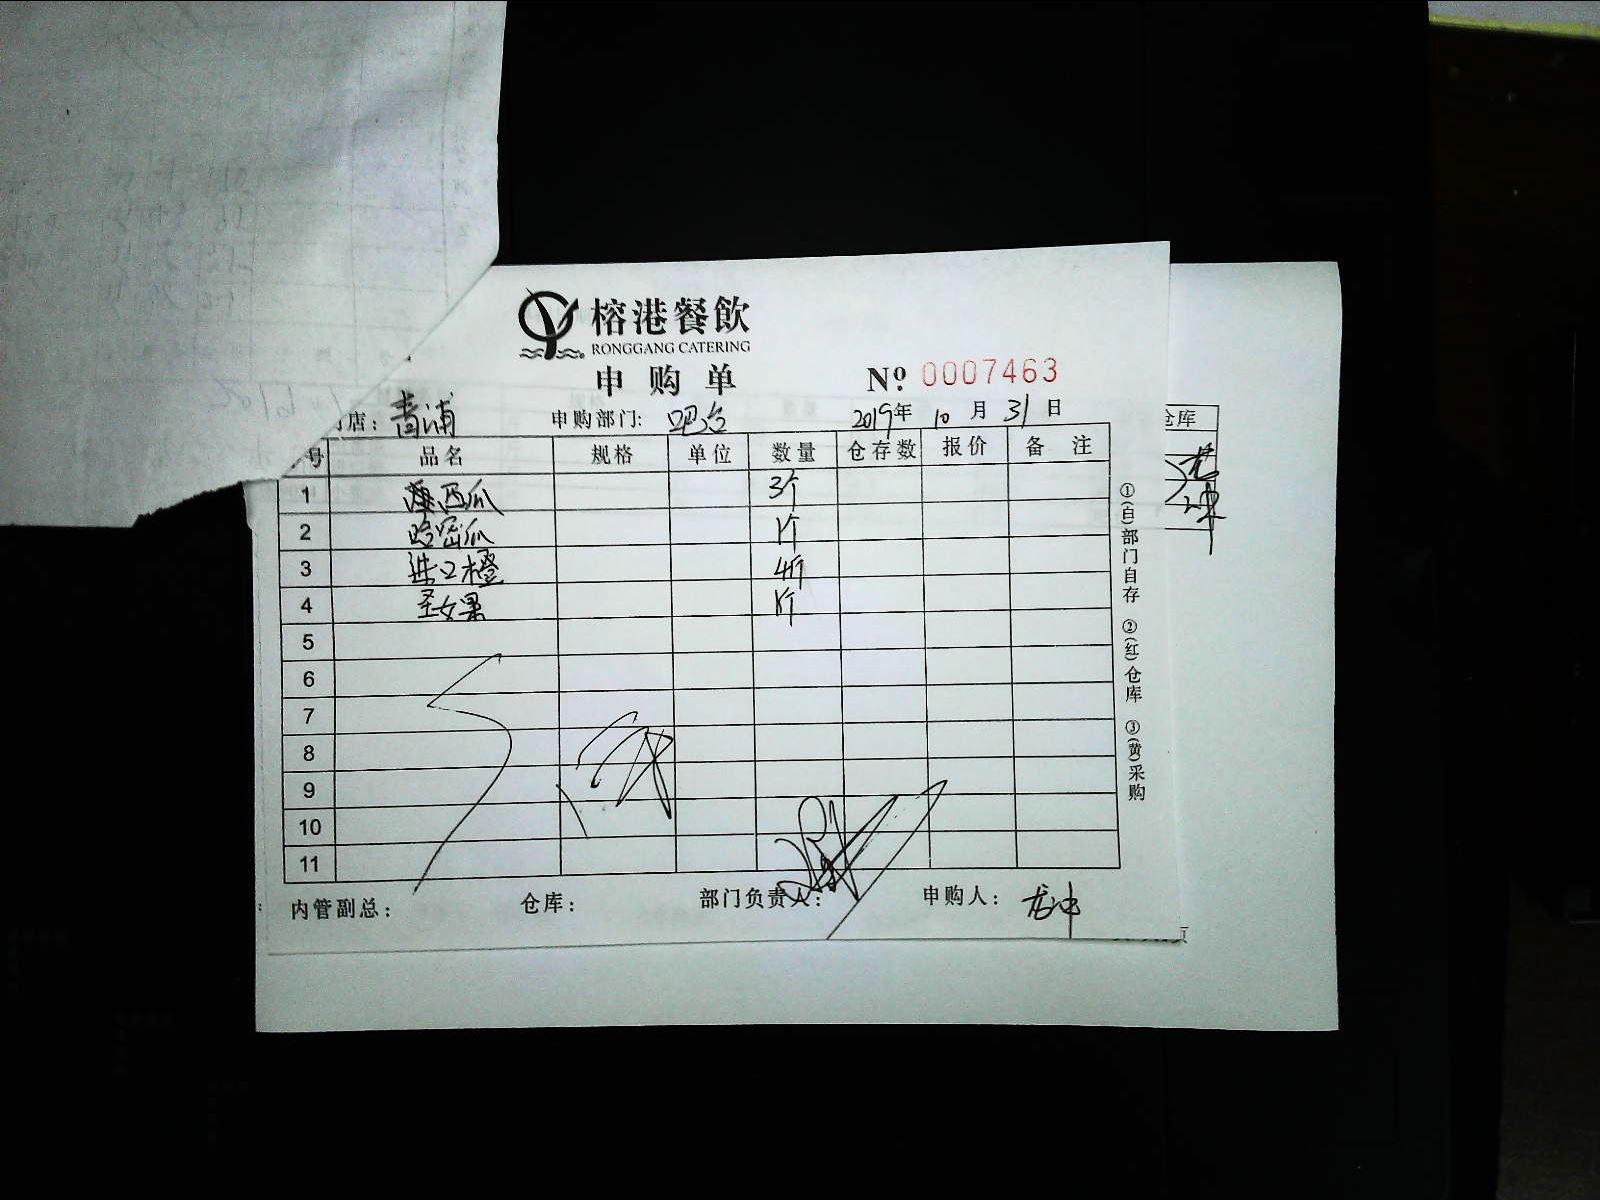 榕港餐飲
RONGGANG CATERING
申购单
№ 0007463
店：青浦 申购部门：吧台 2019年 10 月 31 日
号 品名 规格 单位 数量 仓存数 报价 备注
1 西瓜 3个
2 哈密瓜 1个
3 进口橙 4个
4 圣女果 1个
5
6
7
8
9
10
11
内管副总： 仓库： 部门负责人： 申购人：龙冲
①(白)部门自存 ②(红)仓库 ③(黄)采购
仓库
龙冲
页